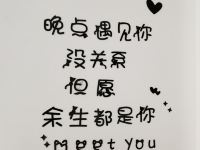 晚点遇见你
没关系
但愿
余生都是你
Meet you